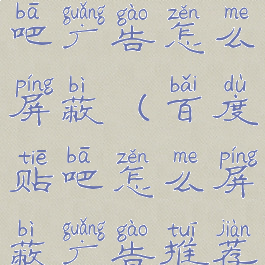 bā guǎng gào zěn me
吧广告怎么
píng bì bǎi dù
屏蔽(百度
tiē bā zěn me píng
贴吧怎么屏
bì guǎng gào tuī jiàn
蔽广告推荐